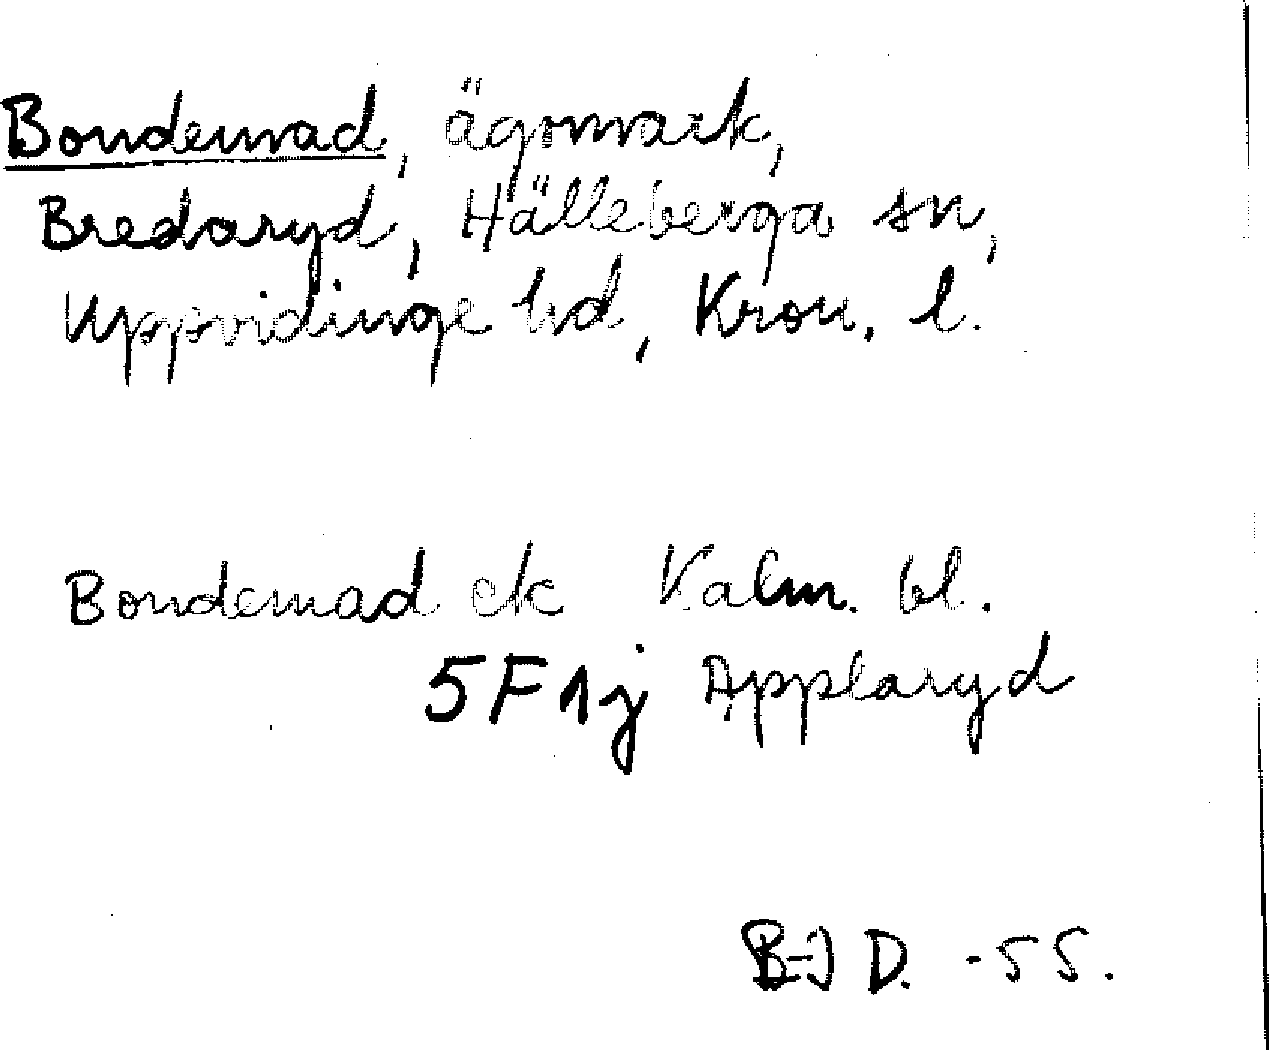 Bondemad, ägomark,
Bredaryd, Hälleberga sn,
Uppvidinge hd, Kron. l.
Bondemad ek Kalm. bl.
5F1j Applaryd
B-J D. -55.